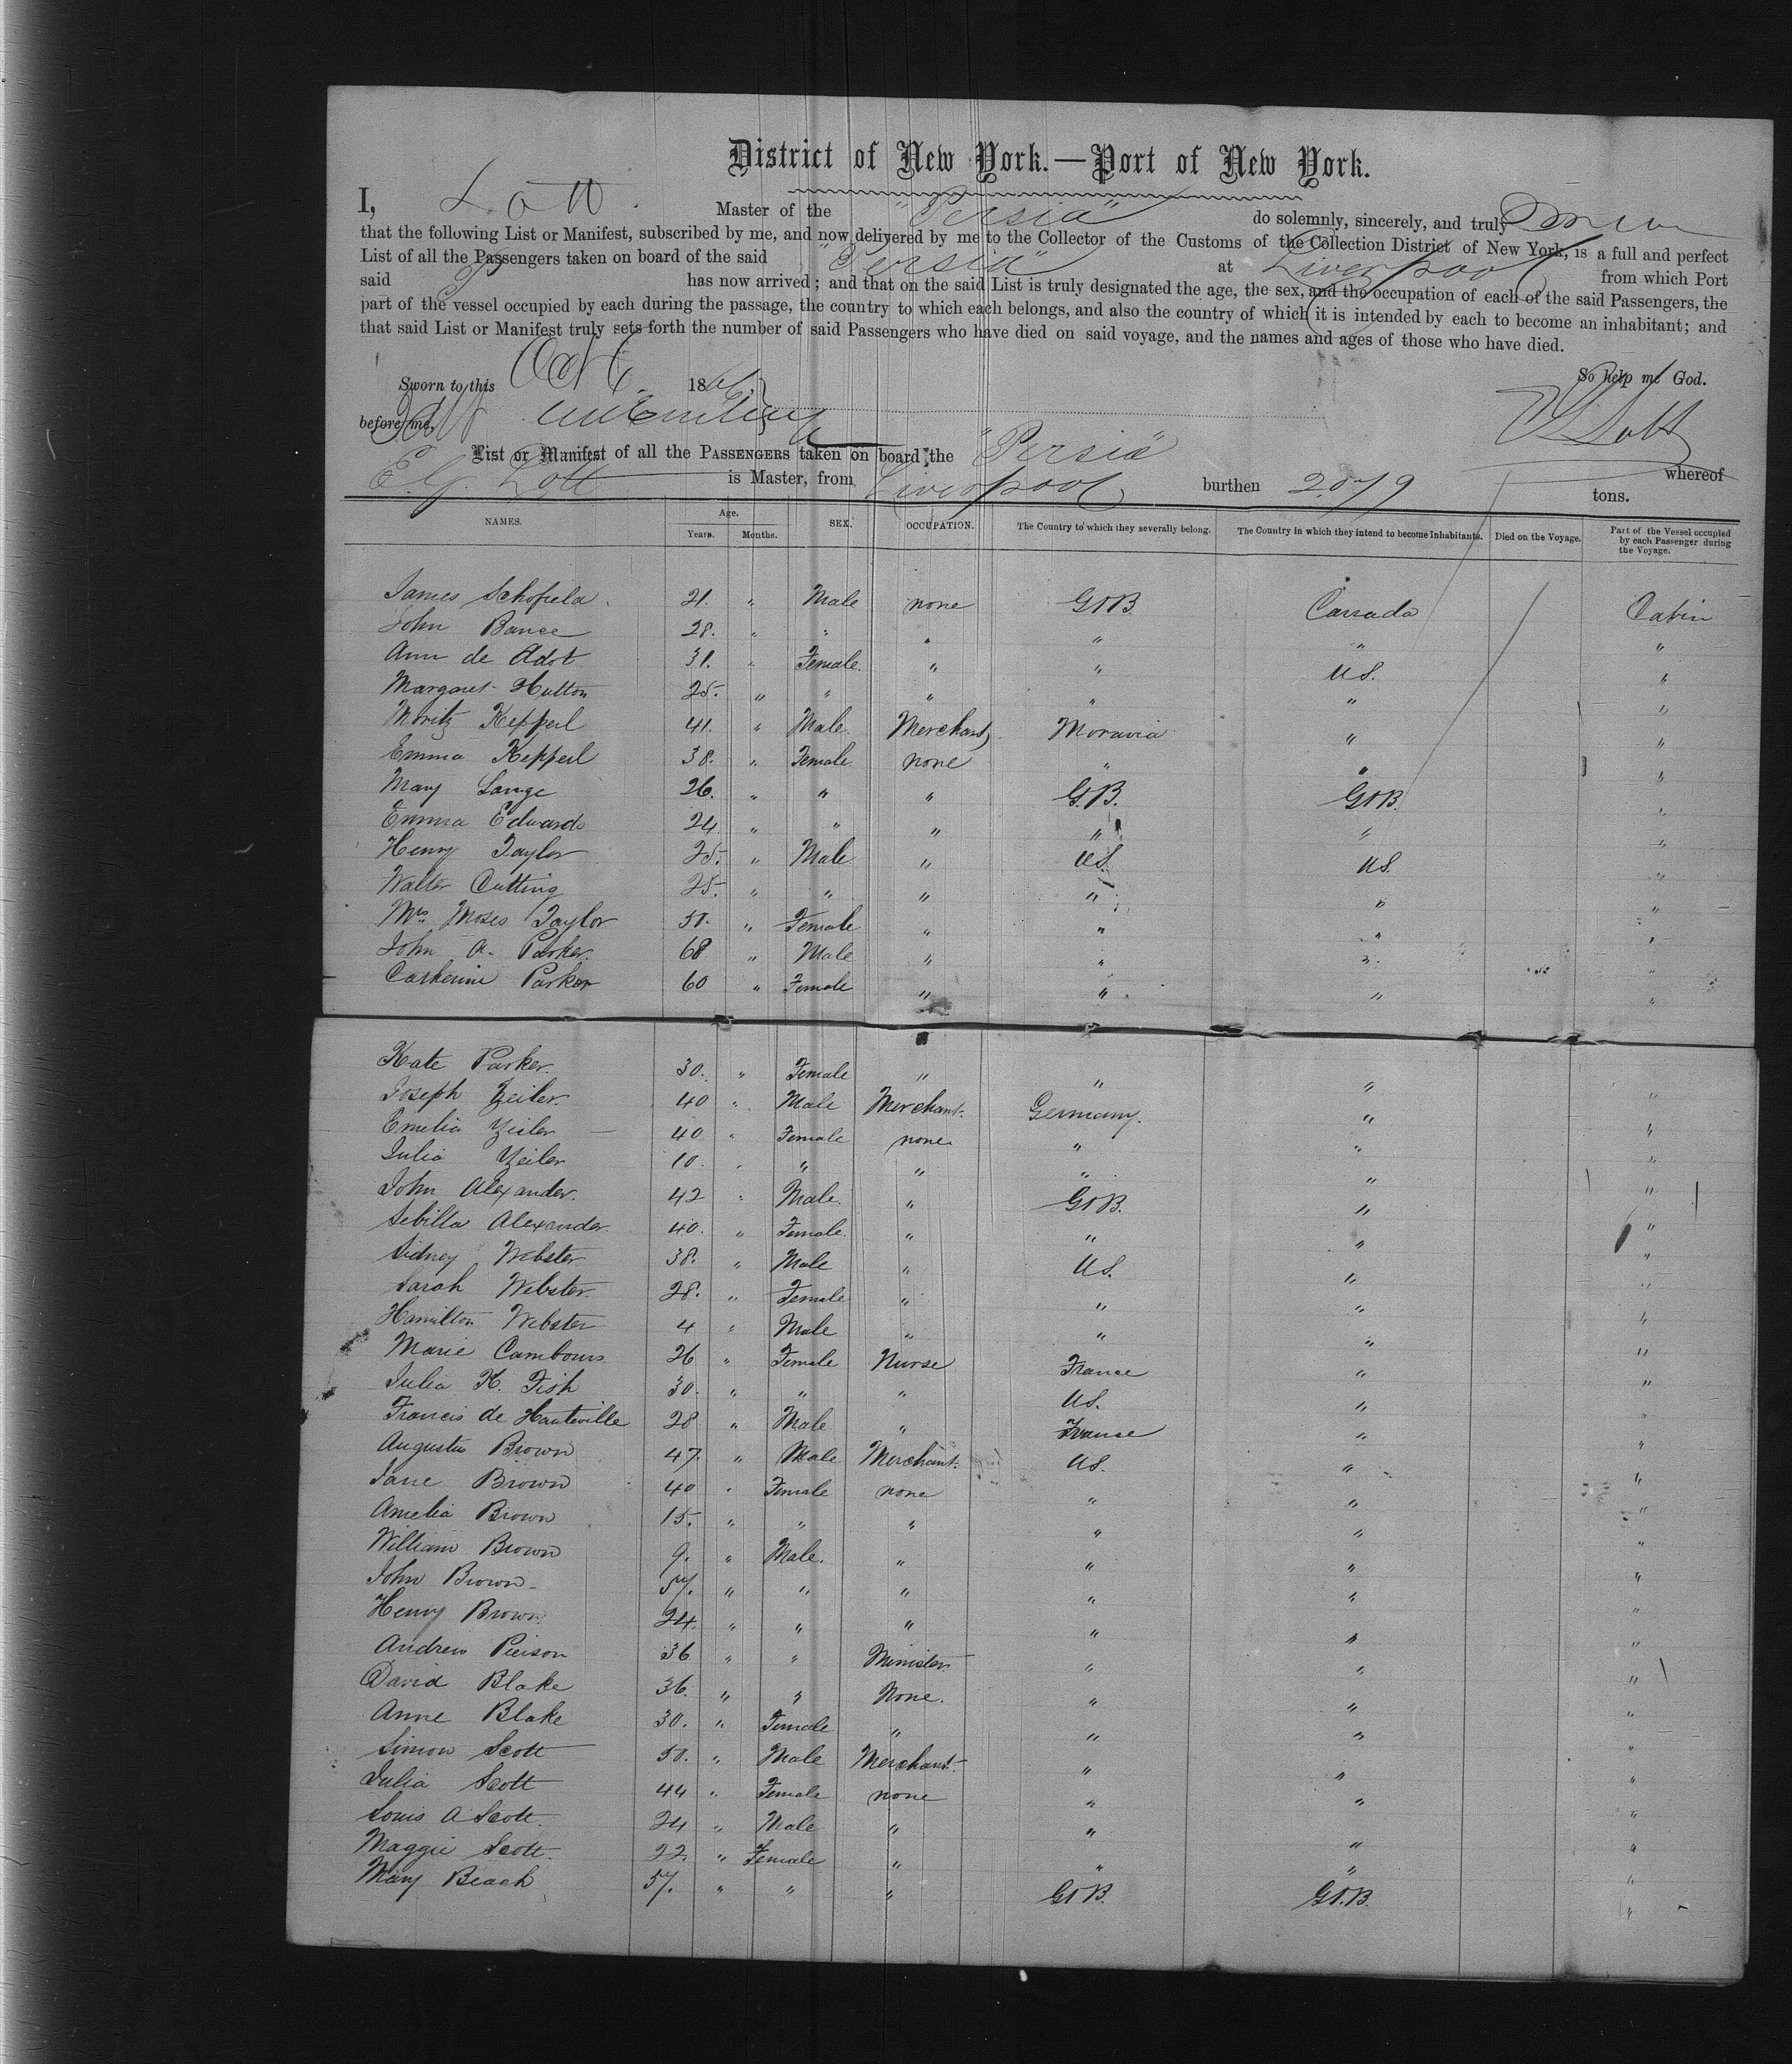 District of New York.—Port of New York.
I, Lott. Master of the "Persia" do solemnly, sincerely, and truly
that the following List or Manifest, subscribed by me, and now delivered by me to the Collector of the Customs of the Collection District of New York, is a full and perfect
List of all the Passengers taken on board of the said "Persia" at Liverpool from which Port
said has now arrived; and that on the said List is truly designated the age, the sex, and the occupation of each of the said Passengers, the
part of the vessel occupied by each during the passage, the country to which each belongs, and also the country of which it is intended by each to become an inhabitant; and
that said List or Manifest truly sets forth the number of said Passengers who have died on said voyage, and the names and ages of those who have died.
So help me God.
Sworn to this Oct 186
before me,
Lott
List or Manifest of all the PASSENGERS taken on board the "Persia" whereof
E.G. Lott is Master, from Liverpool burthen 2079 tons.
NAMES. Age. Years. Months. SEX. OCCUPATION. The Country to which they severally belong. The Country in which they intend to become Inhabitants. Died on the Voyage. Part of the Vessel occupied by each Passenger during the Voyage.
James Schofield. 21. " Male none Gt B. Canada Cabin
John Bance 28. " " " " " "
Ann de Adot 31. " Female. " " U.S. "
Margaret Hutton 25. " " " " " "
Moritz Kepperl 41. " Male. Merchant Moravia " "
Emma Kepperl 38. " Female none " " "
Mary Lange 26. " " " G.B. Gt B. "
Emma Edwards 24 " " " " " "
Henry Taylor 25. " Male " U.S. U.S. "
Walter Cutting 25. " " " " " "
Mrs. Moses Taylor 50. " Female " " " "
John A. Parker. 68 " Male " " " "
Catherine Parker 60 " Female " " " "
Kate Parker. 30. " Female " " " "
Joseph Zeiler. 40 " Male Merchant. Germany. " "
Emelia Zeiler 40 " Female none " " "
Julia Zeiler 10. " " " " " "
John Alexander. 42 " Male " Gt B. " "
Sebilla Alexander. 40. " Female. " " " "
Sidney Webster 38. " Male " U.S. " "
Sarah Webster. 28. " Female " " " "
Hamilton Webster 4 " Male " " " "
Marie Cambours 26 " Female Nurse France " "
Julia K. Fish 30. " " " U.S. " "
Francis de Hauteville 28 " Male " France " "
Augustus Brown 47. " Male Merchant. U.S. " "
Jane Brown 40 " Female none " " "
Amelia Brown 15. " " " " " "
William Brown 9. " Male. " " " "
John Brown 57. " " " " " "
Henry Brown 24. " " " " " "
Andrew Pierson 36 " " Minister " " "
David Blake 36. " " None. " " "
Anne Blake 30. " Female " " " "
Simon Scott 50. " Male Merchant. " " "
Julia Scott 44 " Female none " " "
Louis A Scott. 24 " Male " " " "
Maggie Scott. 22. " Female " " " "
Mary Beach 57. " " " Gt B. Gt. B. "